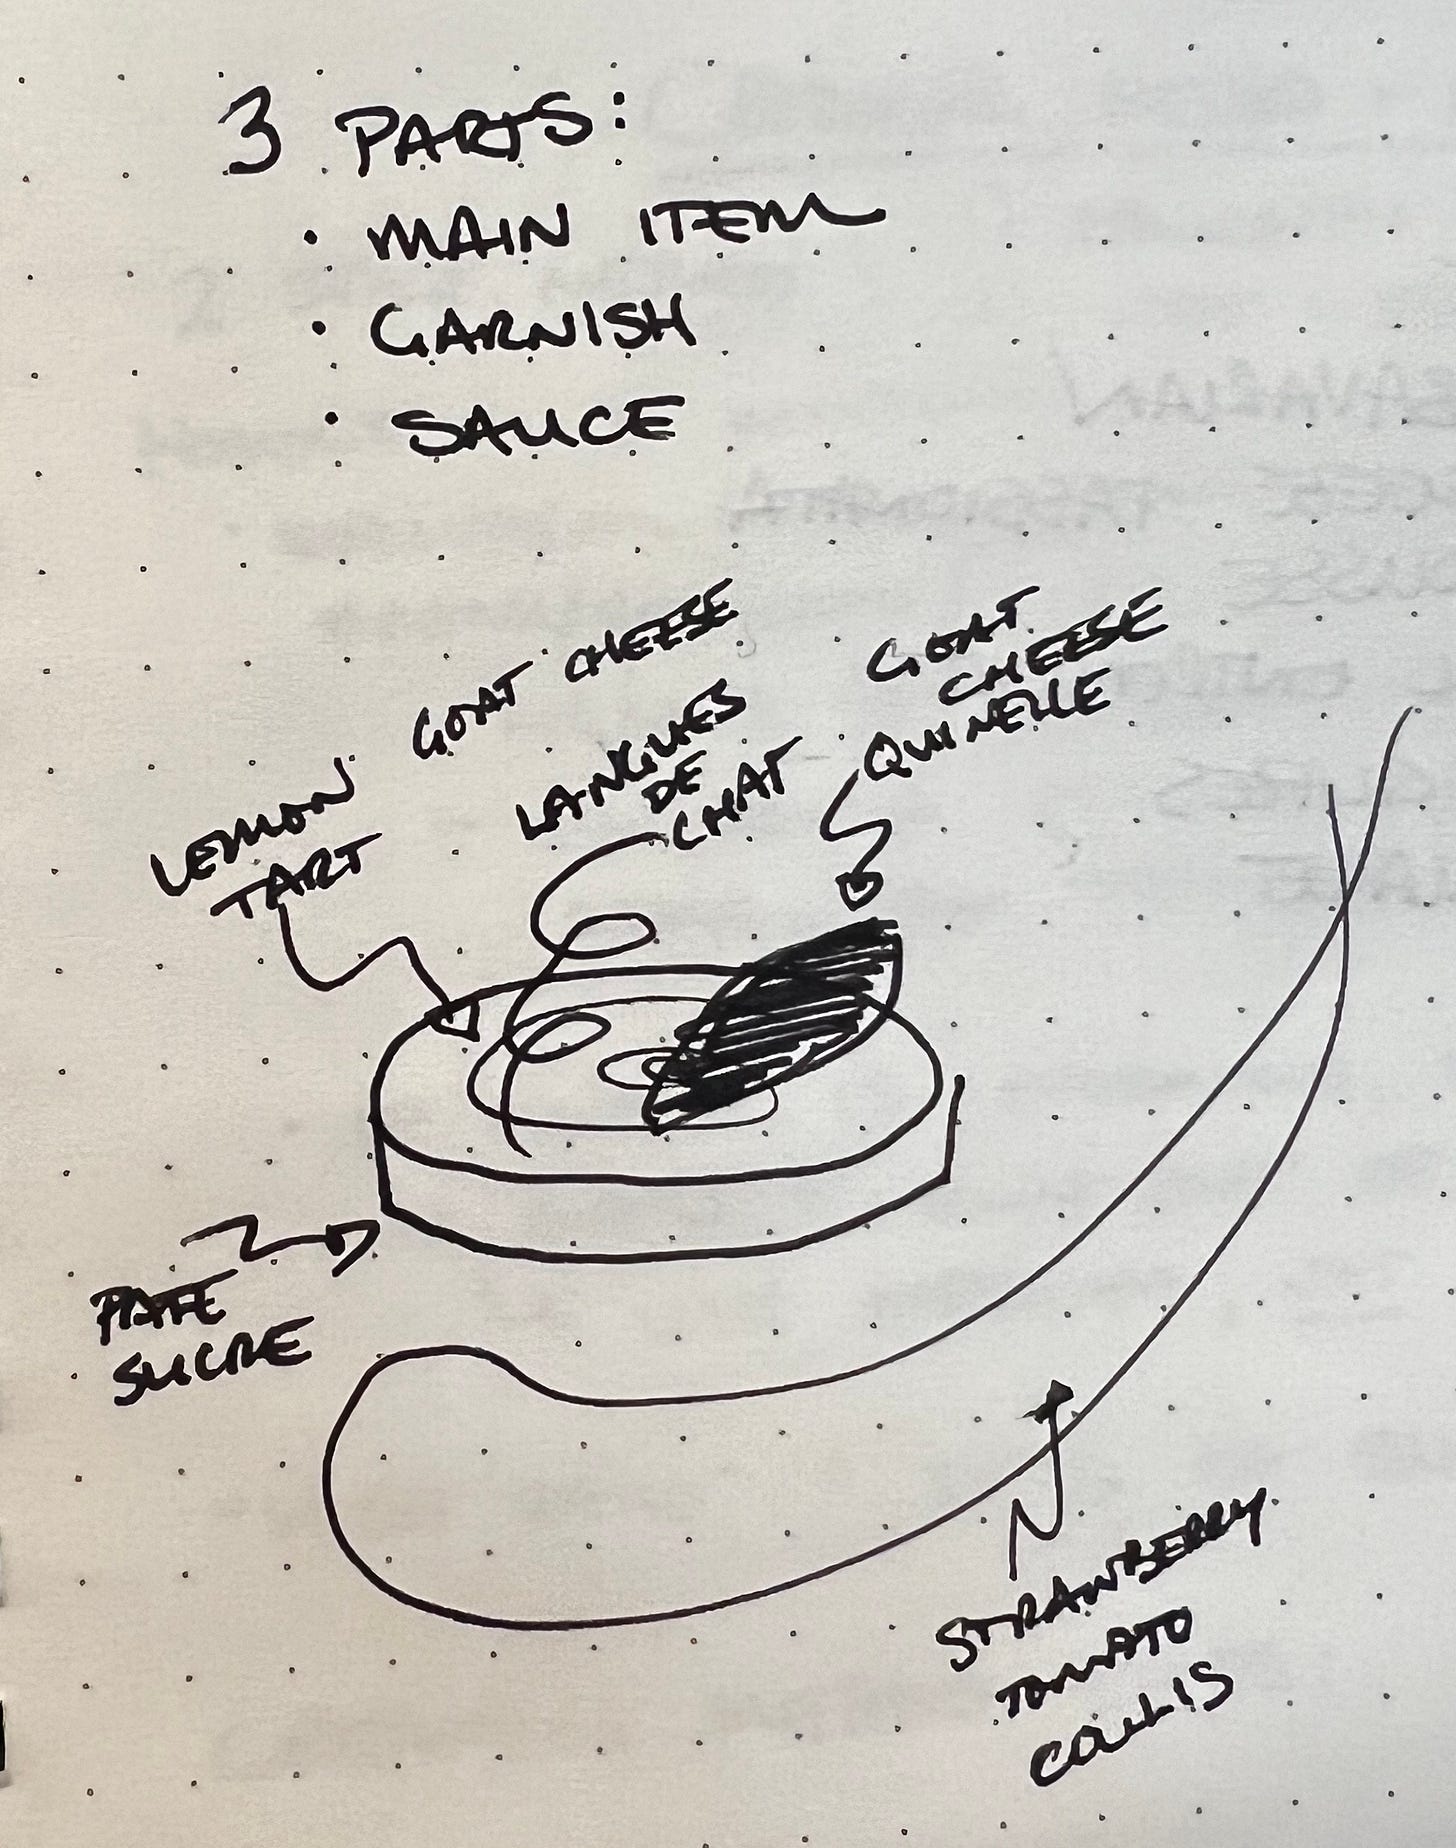 3 PARTS:
· MAIN ITEM
· GARNISH
· SAUCE
LEMON GOAT CHEESE
TART
LANGUES
DE
CHAT
GOAT
CHEESE
QUINELLE
PATE
SUCRE
STRAWBERRY
TOMATO
COULIS